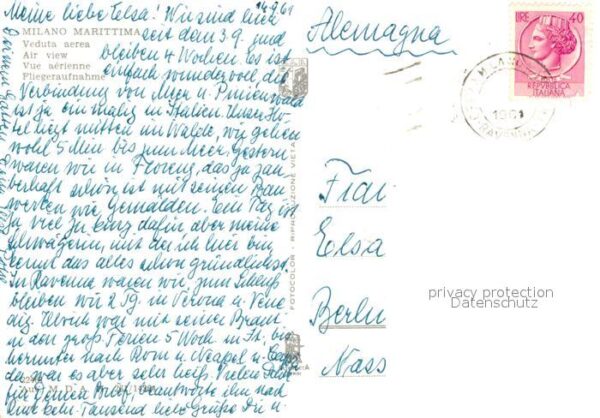 14.9.61
Meine liebe Elsa! Wir sind hier
MILANO MARITTIMA
Veduta aerea
Air view
Vue aérienne
Fliegeraufnahme
seit dem 3.9. und
bleiben 4 Wochen. Es ist
einfach wundervoll die
Verbindung von Meer u. Pinienwald
ist ja einmalig in Italien. Unser Ho-
tel liegt mitten im Walde, wir gehen
wohl 5 Min bis zum Meer. Gestern
waren wir in Florenz, das ja zau
berhaft schön ist mit seinen Bau
werken wie Gemälden. Ein Tag ist
ja viel zu
dafür aber meine
Schwägerin, mit der ich hier bin
kennt das alles schon gründlichst.
In Ravenna waren wir, zum Schluß
bleiben wir 2 Tg. in Verona u. Vene
dig. Ulrich war mit seiner Braut
in den groß. Ferien 5 Woch. in It., bis
herunter nach Rom u. Neapel u. Capri
da war es aber sehr heiß. Vielen Dank
für Deinen Brief, beantworte ihn nach
Tausend liebe Grüße Die u.
FOTOCOLOR - RIPRODUZIONE VIETATA
Alemagna
LIRE 40
REPVBBLICA
ITALIANA
MILANO
1961
Frau
Elsa
Berlin
Nass
privacy protection
Datenschutz